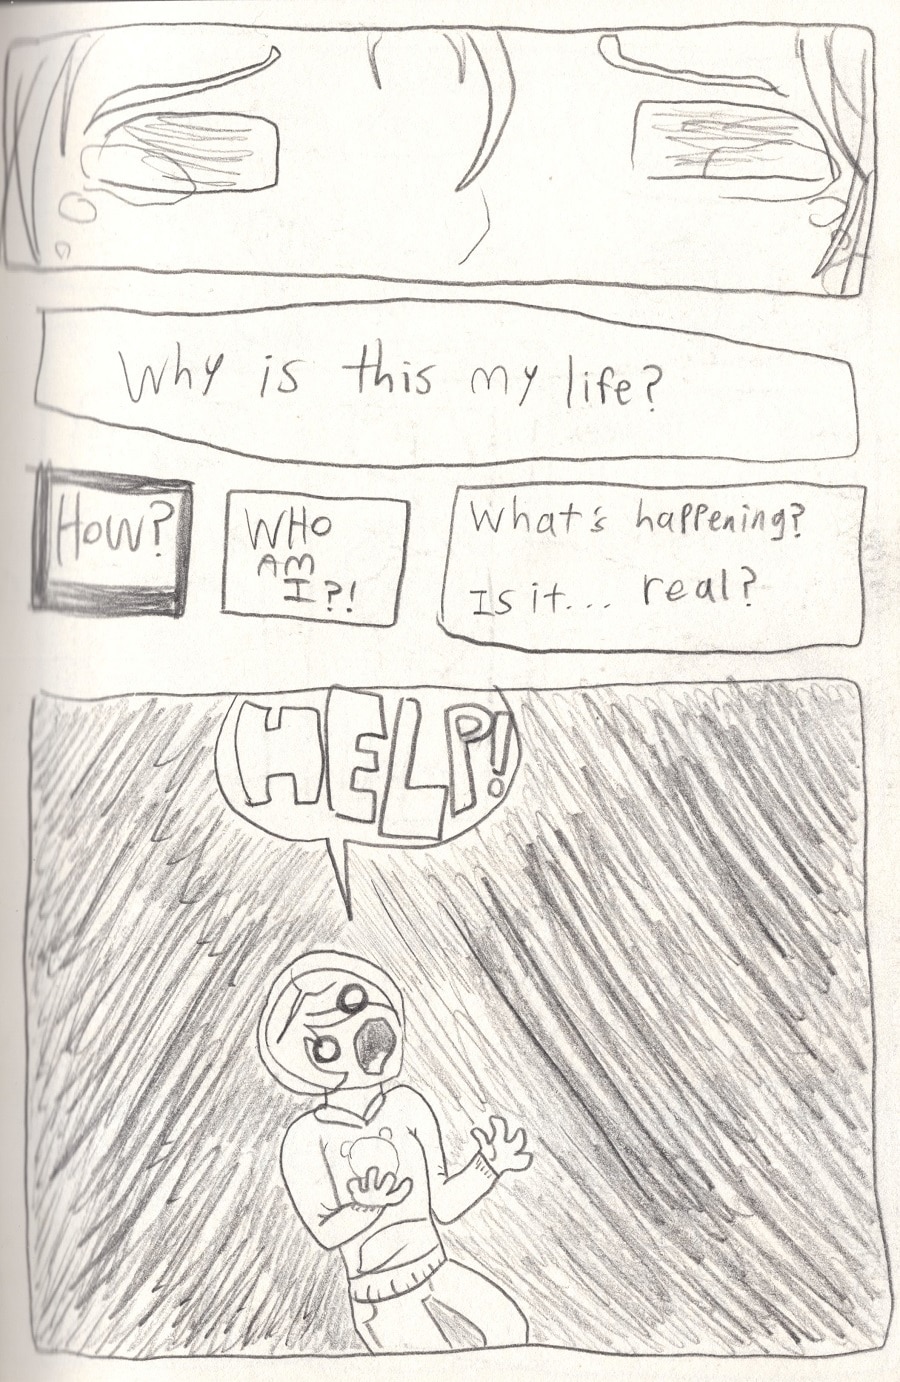 Why is this my life?
HOW?
WHO
AM
I?!
What's happening?
Is it.... real?
HELP!